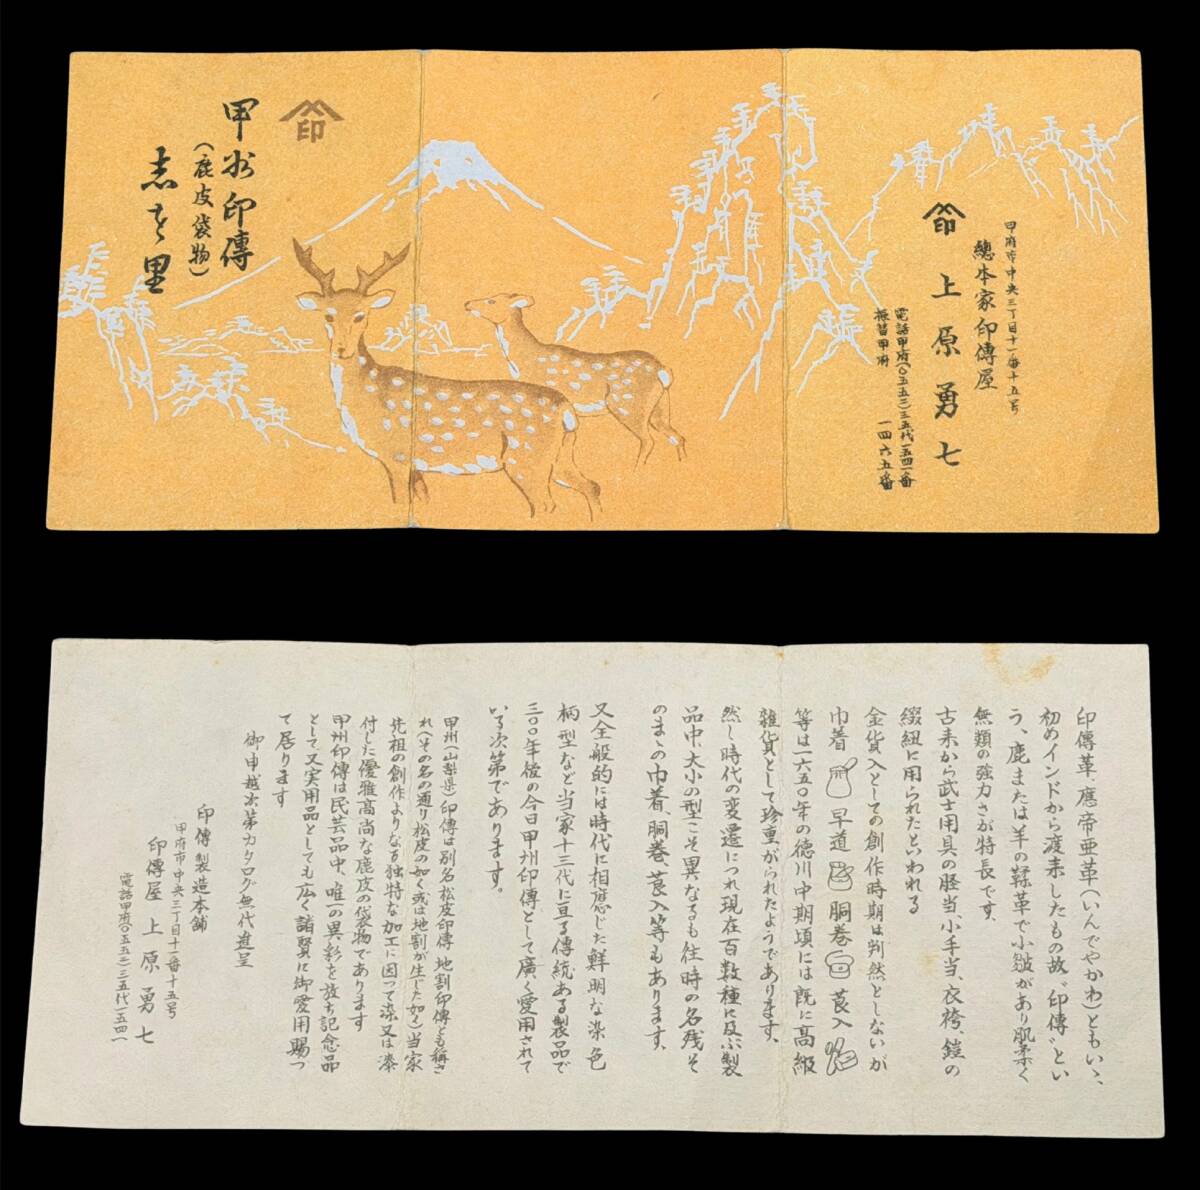 甲府市中央三丁目十一番十五号
總本家印傳屋
印 上原勇七
電話甲府(〇五五二)三五代一五四一番
振替甲府 一四六五番
印
甲州印傳
(鹿皮袋物)
志をり里
印傳革、應帝亜革(いんでやかわ)ともいゝ、
初めインドから渡来したもの故〝印傳〟とい
う、鹿または羊の鞣革で小皺があり肌柔く
無類の強力さが特長です、
古来から武士用具の脛当、小手当、衣袴、鎧の
綴紐に用られたといわれる
金貨入としての創作時期は判然としないが
巾着 早道 胴巻 莨入
等は一六五〇年の徳川中期頃には既に高級
雑貨として珍重がられたようであります、
然し時代の変遷につれ現在百数種に及ぶ製
品中、大小の型こそ異なるも往時の名残そ
のまゝの巾着、胴巻、莨入等もあります、
又全般的には時代に相應じた鮮明な染色
柄型など当家十三代に亘る傳統ある製品で
三〇〇年後の今日甲州印傳として廣く愛用されて
いる次第であります。
甲州(山梨県)印傳は別名松皮印傳、地割印傳とも称さ
れ(その名の通り松皮の如く或は地割が生じた如く)当家
先祖の創作よりなる独特な加工に因って染又は漆
付した優雅高尚な鹿皮の袋物であります
甲州印傳は民芸品中、唯一の異彩を放ち記念品
として又実用品としても広く諸賢に御愛用賜っ
て居ります
御申越次第カタログ無代進呈
印傳製造本舗
甲府市中央三丁目十一番十五号
印傳屋 上原勇七
電話甲府〇五五二)三五代一五四一